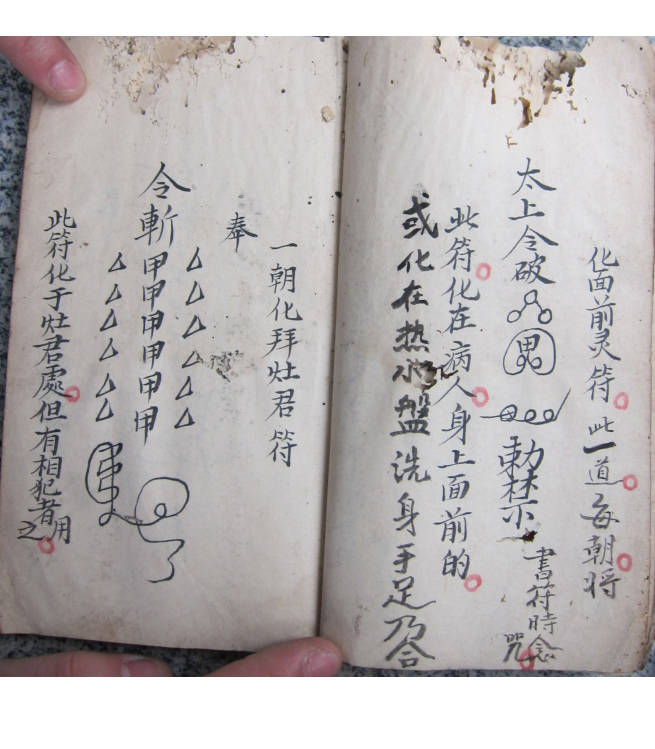 化面前灵符此一道每朝将
太上令破
勅禁
書符時念咒
此符化在病人身上面前的
或化在热水盤洗身手足乃合
一朝化拜灶君符
奉
令斬甲甲甲甲甲甲
此符化于灶君處但有相犯者用之